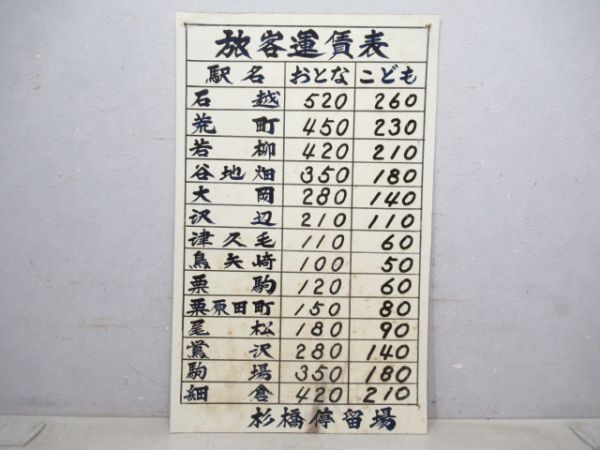 旅客運賃表
駅名 おとな こども
石越 520 260
荒町 450 230
若柳 420 210
谷地畑 350 180
大岡 280 140
沢辺 210 110
津久毛 110 60
鳥矢崎 100 50
栗駒 120 60
栗原田町 150 80
尾松 180 90
鴬沢 280 140
駒場 350 180
細倉 420 210
杉橋停留場